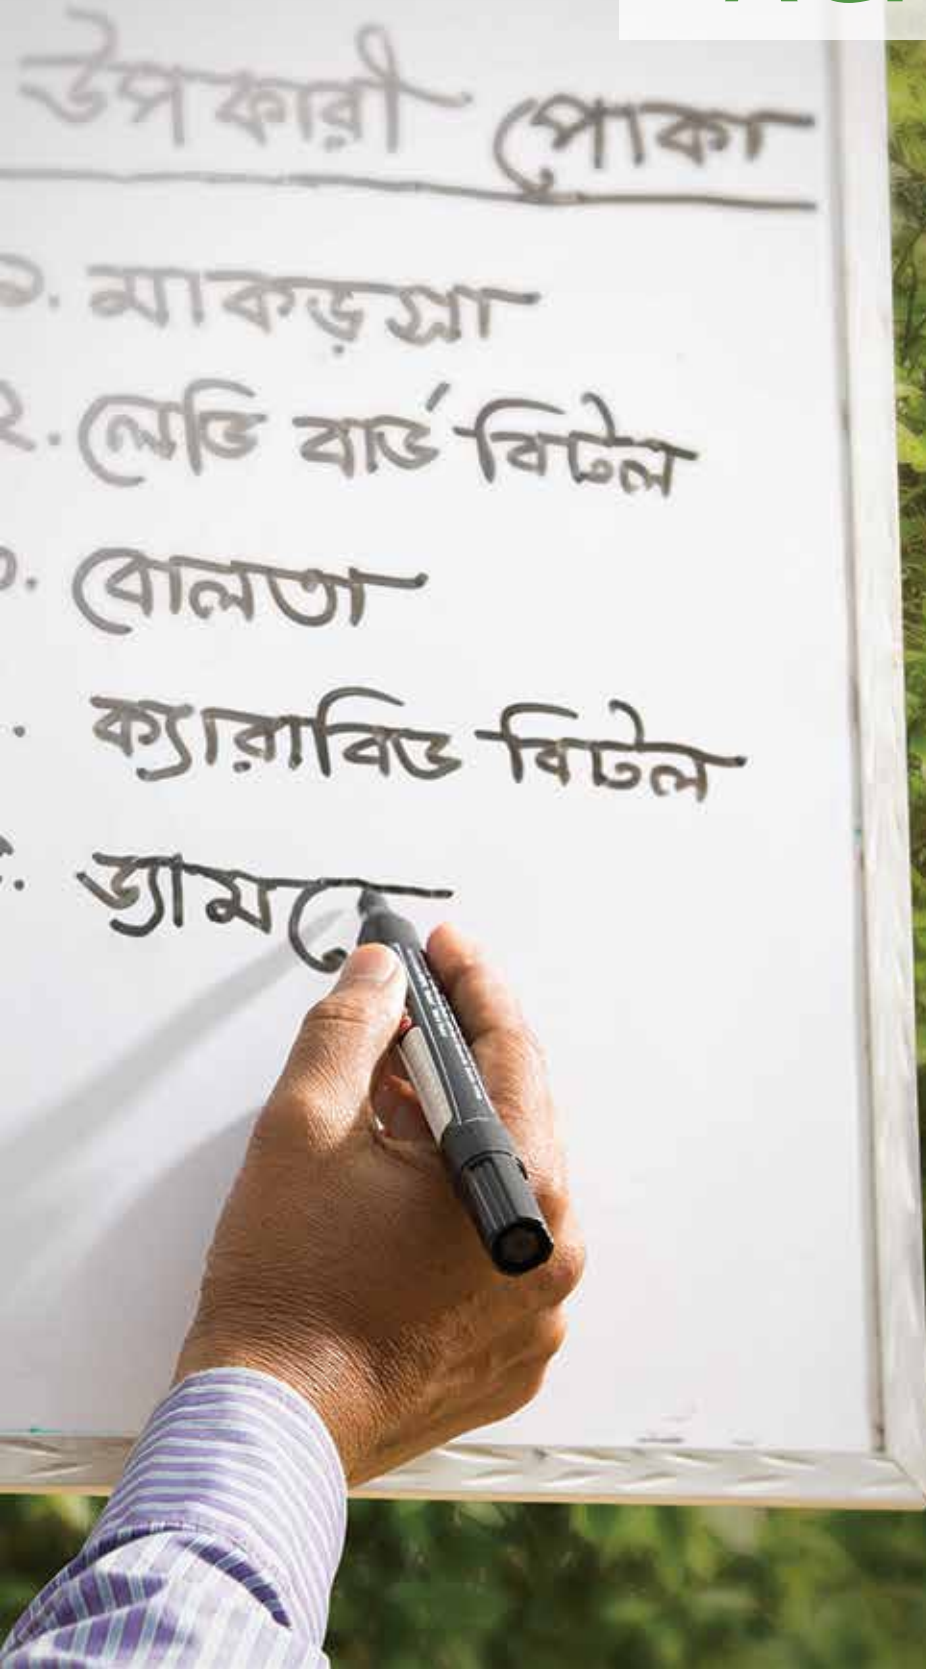 উপকারী পোকা
১. মাকড়সা
২. লেডি বার্ড বিটল
৩. বোলতা
. ক্যারাবিড বিটল
৫. ড্যাম